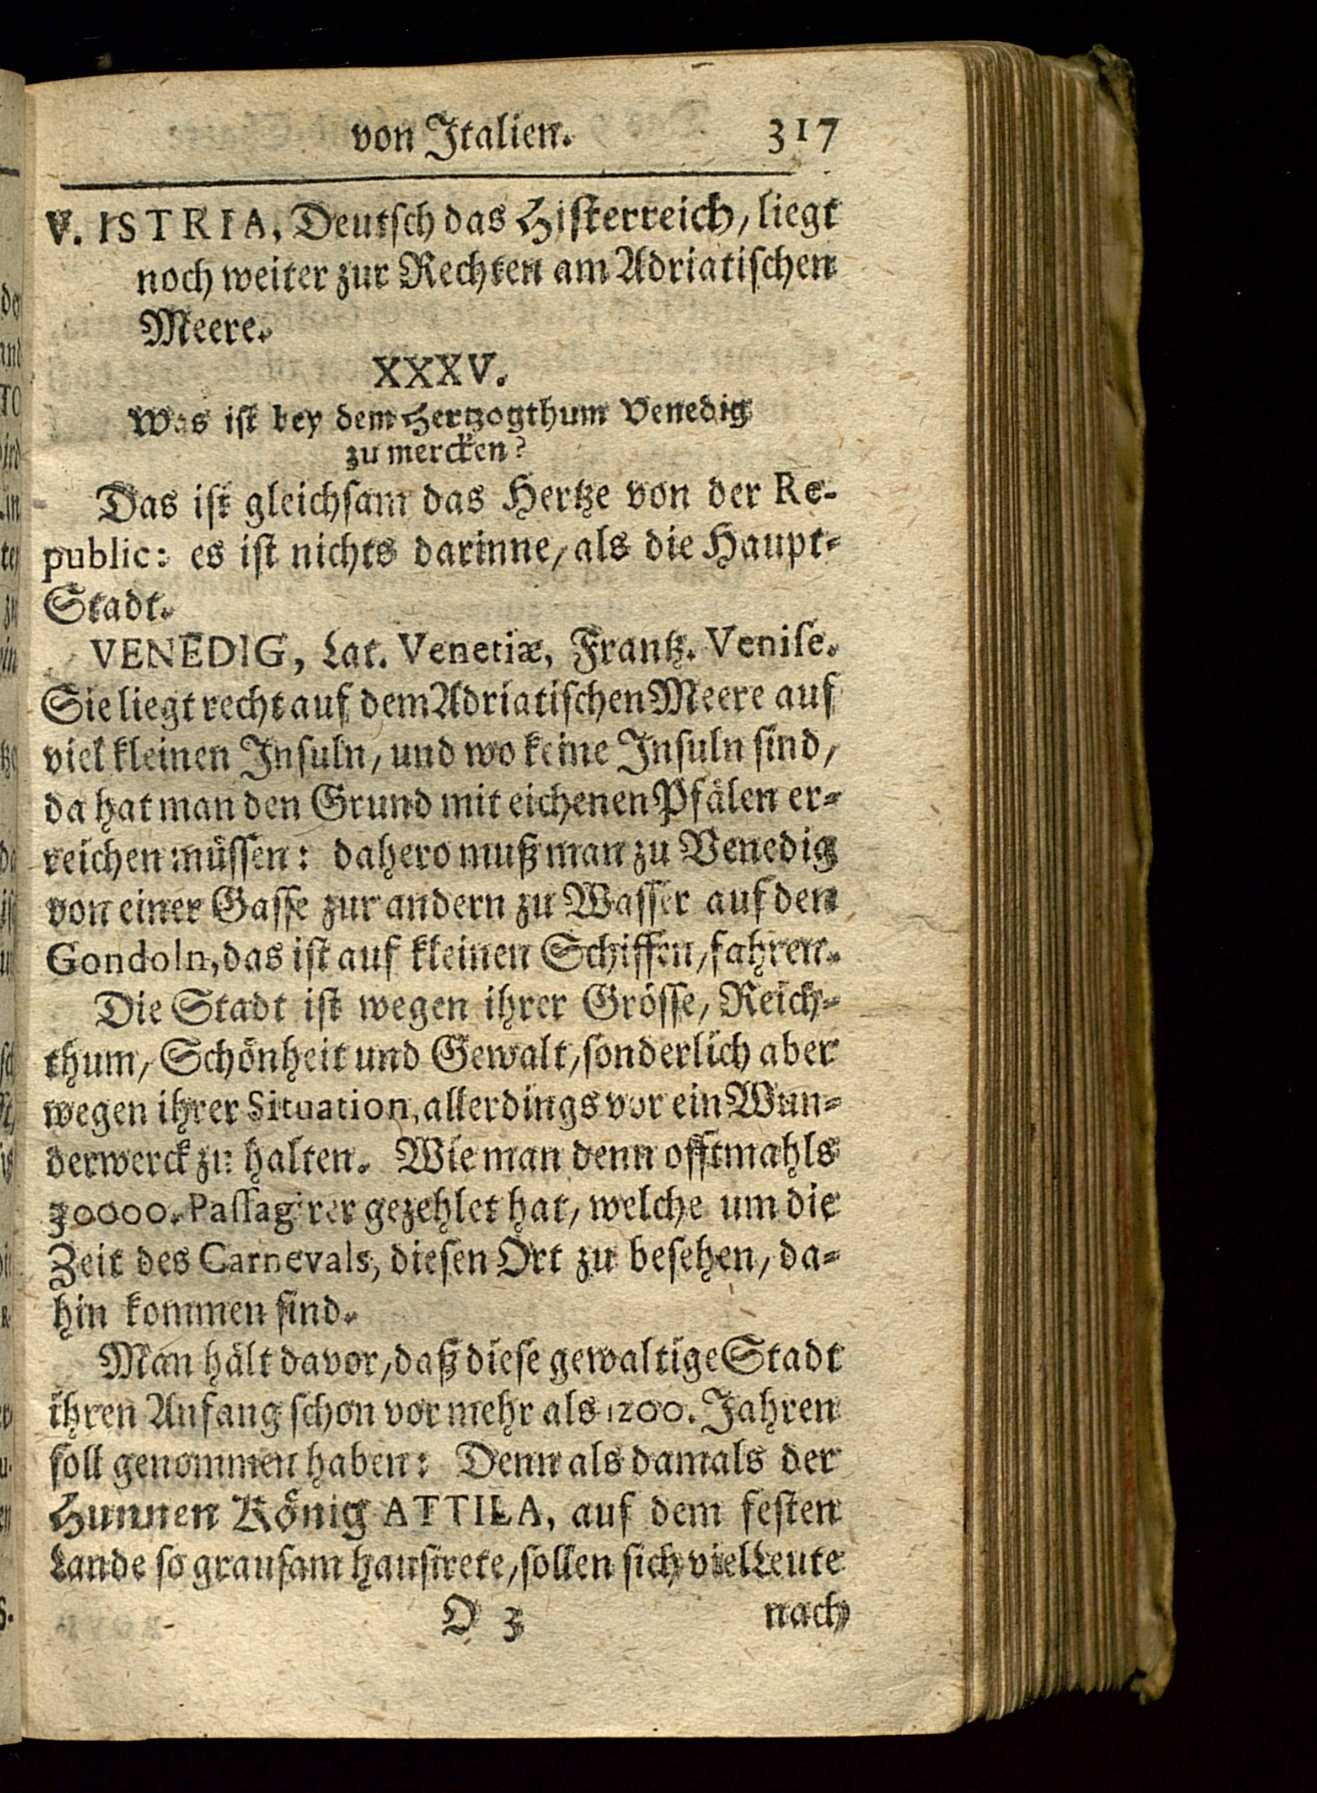 von Italien. 317
V. ISTRIA, Deutsch das Histerreich, liegt
noch weiter zur Rechten am Adriatischen
Meere.
XXXV.
Was ist bey dem Hertzogthum Venedig
zu mercken?
Das ist gleichsam das Hertze von der Re-
public: es ist nichts darinne, als die Haupt-
Stadt.
VENEDIG, Lat. Venetiæ, Frantz. Venise.
Sie liegt recht auf dem Adriatischen Meere auf
viel kleinen Insuln, und wo keine Insuln sind,
da hat man den Grund mit eichenen Pfälen er-
reichen müssen: dahero muß man zu Venedig
von einer Gasse zur andern zu Wasser auf den
Gondoln, das ist auf kleinen Schiffen, fahren.
Die Stadt ist wegen ihrer Grösse, Reich-
thum, Schönheit und Gewalt, sonderlich aber
wegen ihrer Situation, allerdings vor ein Wun-
derwerck zu halten. Wie man denn offtmahls
30000. Passagirer gezehlet hat, welche um die
Zeit des Carnevals, diesen Ort zu besehen, da-
hin kommen sind.
Man hält davor, daß diese gewaltige Stadt
ihren Anfang schon vor mehr als 1200. Jahren
soll genommen haben: Denn als damals der
Hunnen König ATTILA, auf dem festen
Lande so grausam hausirete, sollen sich viel Leute
O 3 nach